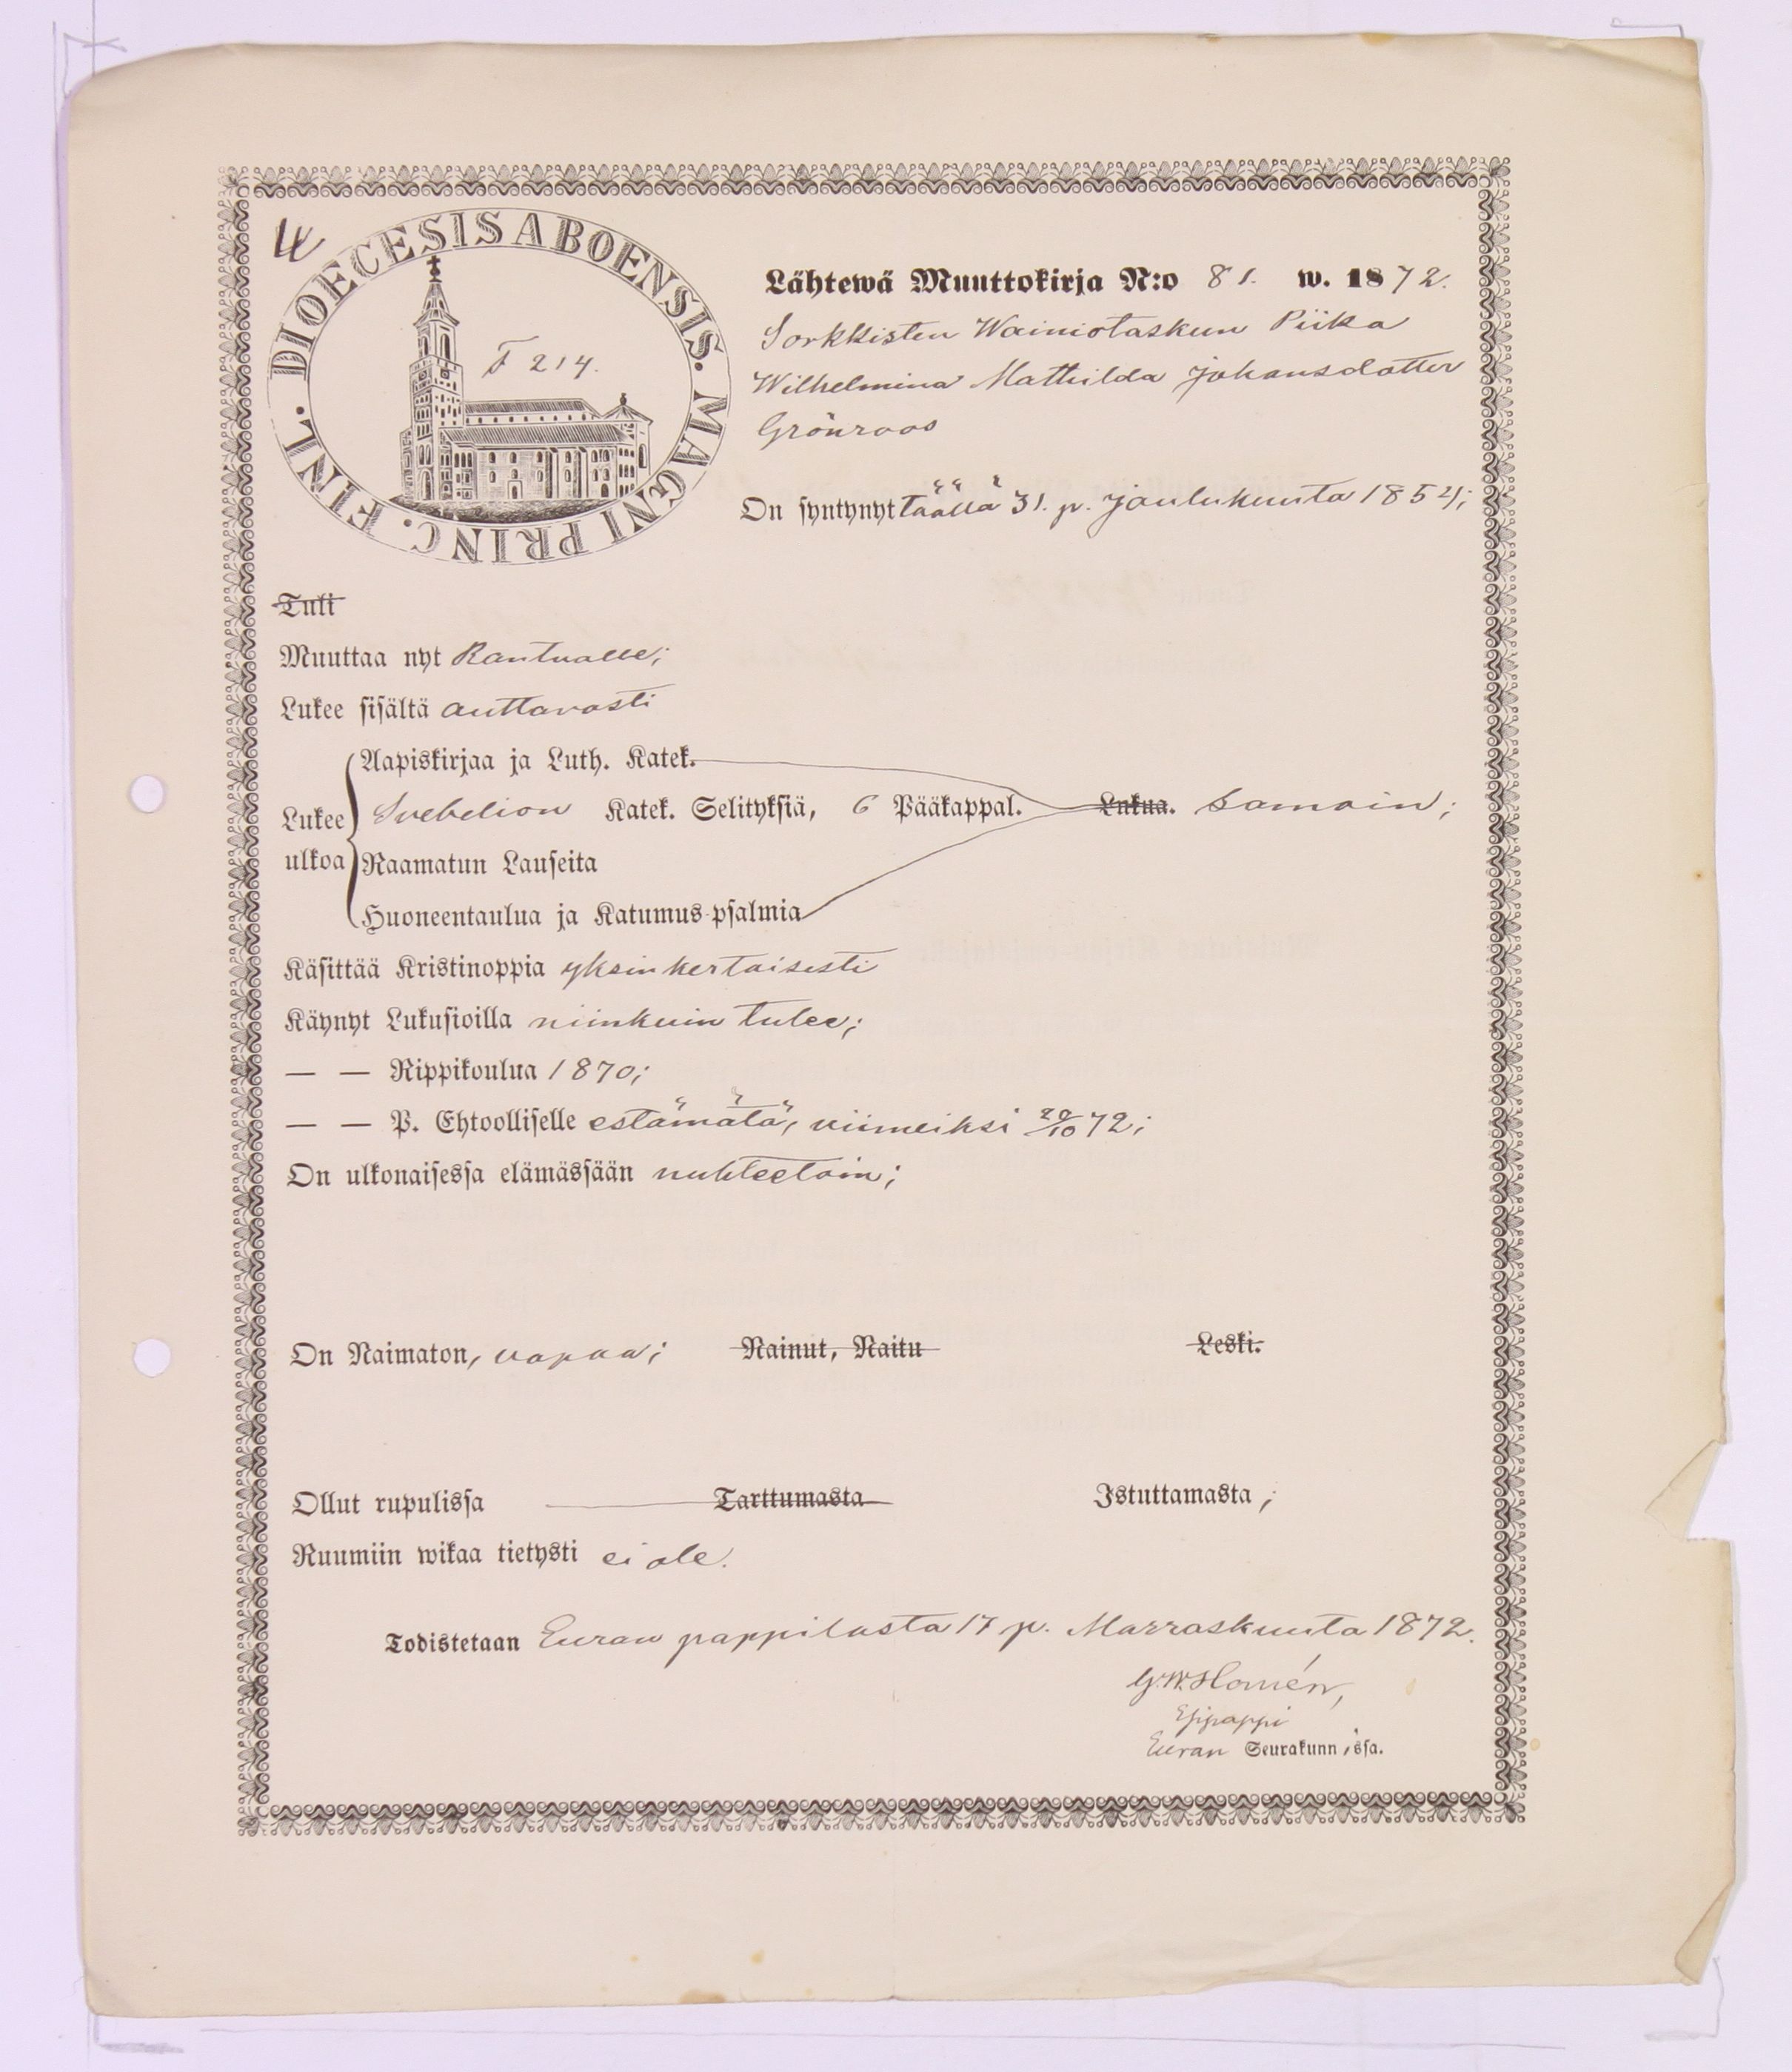 4
DIOECESIS ABOENSIS. MAGNI PRINC. FINL.
F 214.
Lähtewä Muuttokirja N:o 81. w. 1872.
Sorkkisten Wainiotaskun Piika
Wilhelmina Mathilda Johansdotter
Grönroos
On syntynyt täällä 31. p. Joulukuuta 1854;
Tuli
Muuttaa nyt Kautualle;
Lukee sisältä auttavasti
Lukee ulkoa
Aapiskirjaa ja Luth. Katek.
Svebelion Katek. Selityksiä, 6 Pääkappal. Lukua. samoin;
Raamatun Lauseita
Huoneentaulua ja Katumus-psalmia
Käsittää Kristinoppia yksinkertaisesti
Käynyt Lukusioilla niinkuin tulee;
— — Rippikoulua 1870;
— — P. Ehtoolliselle estämätä, viimeiksi 20/10 72;
On ulkonaisessa elämässään nuhteetoin;
On Naimaton, vapaa; Nainut, Naitu Leski.
Ollut rupulissa Tarttumasta Istuttamasta;
Ruumiin wikaa tietysti ei ole.
Todistetaan Euran pappilasta 17 p. Marraskuuta 1872.
G.W. Homén,
Esipappi
Euran Seurakunnissa.